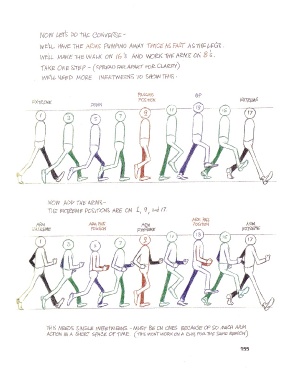 NOW LET'S DO THE CONVERSE -
WE'LL HAVE THE ARMS PUMPING AWAY TWICE AS FAST AS THE LEGS.
WE'LL MAKE THE WALK ON 16'S AND WORK THE ARMS ON 8'S.
TAKE ONE STEP - (SPREAD FAR APART FOR CLARITY)
WE'LL NEED MORE INBETWEENS TO SHOW THIS -
PASSING
POSITION
EXTREME DOWN UP EXTREME
1 3 5 7 9 11 13 15 17
NOW ADD THE ARMS -
THE EXTREME POSITIONS ARE ON 1, 9, and 17
ARM EXTREME ARM PASS POSITION ARM EXTREME ARM PASS POSITION ARM EXTREME
1 3 5 7 9 11 13 15 17
THIS NEEDS SINGLE INBETWEENS - MUST BE ON ONES BECAUSE OF SO MUCH ARM
ACTION IN A SHORT SPACE OF TIME (THIS WON'T WORK ON A RUN, FOR THE SAME REASON)